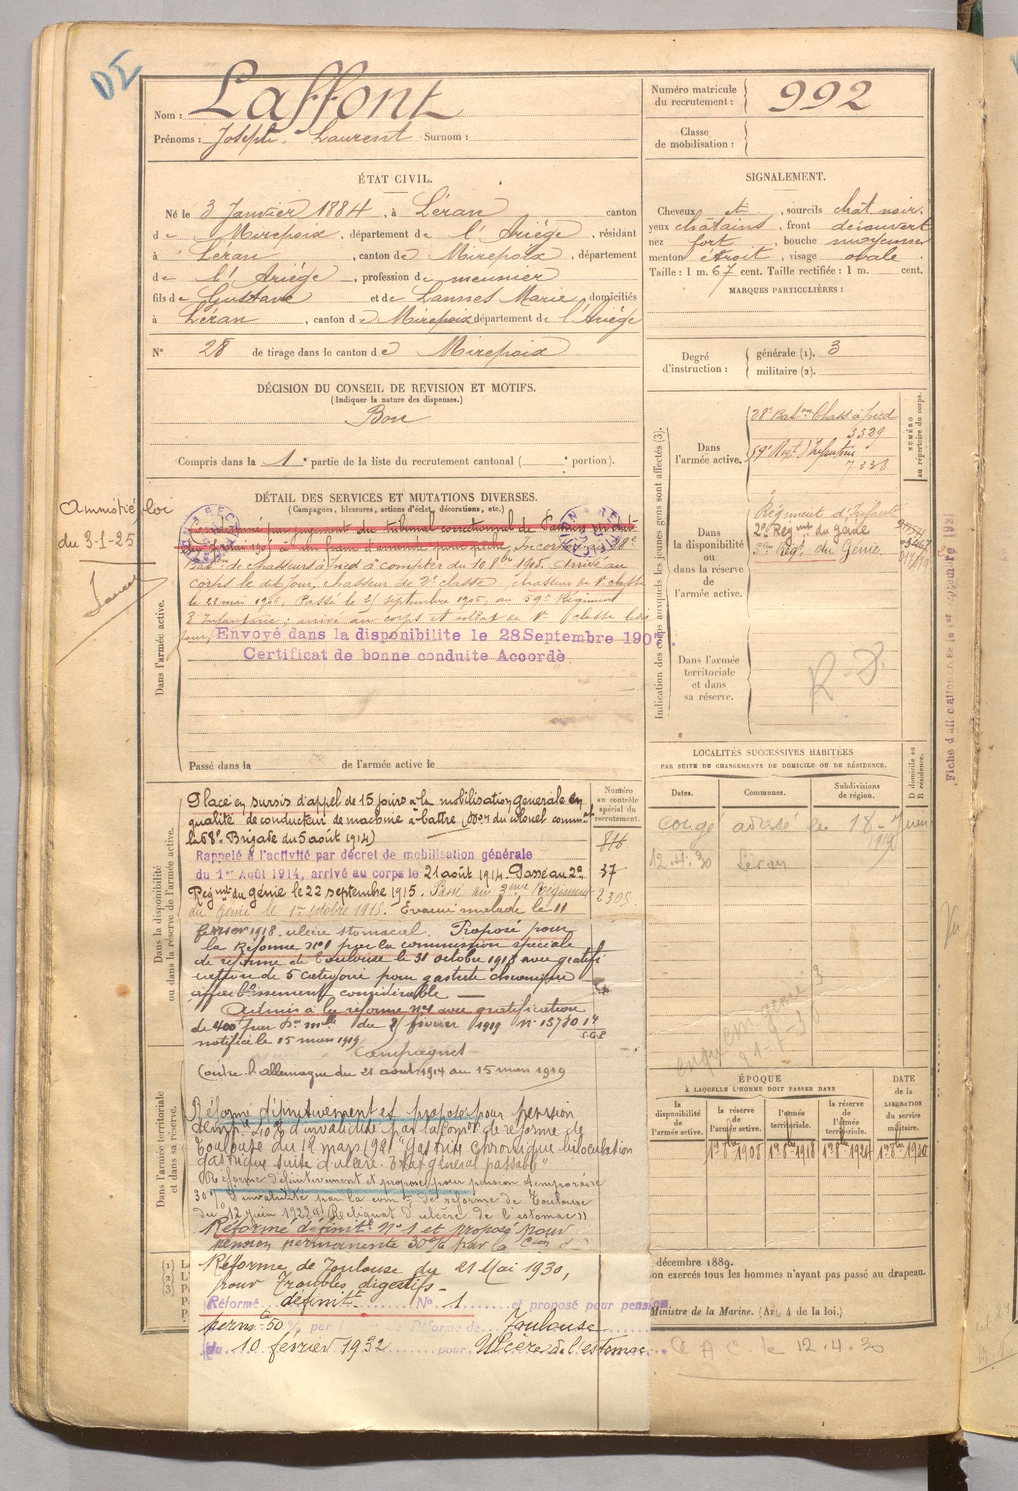 DI
Nom : Laffont
Prénoms : Joseph, Laurent Surnom :
Numéro matricule
du recrutement : 992
Classe
de mobilisation :
ÉTAT CIVIL.
Né le 3 Janvier 1884, à Léran canton
de Mirepoix, département de l'Ariège, résidant
à Léran, canton de Mirepoix, département
de l'Ariège, profession de meunier
fils de Gustave et de Lannes Marie, domiciliés
à Léran, canton de Mirepoix département de l'Ariège
N° 28 de tirage dans le canton de Mirepoix
SIGNALEMENT.
Cheveux et, sourcils chât noir.
yeux châtains, front découvert
nez fort, bouche moyenne
menton étroit, visage ovale.
Taille : 1 m. 67 cent. Taille rectifiée : 1 m. cent.
MARQUES PARTICULIÈRES :
Degré
d'instruction :
générale (1). 3
militaire (2).
DÉCISION DU CONSEIL DE REVISION ET MOTIFS.
(Indiquer la nature des dispenses.)
Bon
Compris dans la 1e partie de la liste du recrutement cantonal ( e portion).
DÉTAIL DES SERVICES ET MUTATIONS DIVERSES.
(Campagnes, blessures, actions d'éclat, décorations, etc.)
Amnistié loi
du 3-1-25
Dans l'armée active.
par jugement du tribunal correctionnel de Pamiers
à un franc d'amende pour pêche, Incorporé 28e
de chasseurs à pied à compter du 10 8bre 1905. Arrivé au
corps le dit jour, chasseur de 2e classe, chasseur de 1e classe
le 22 mai 1906, Passé le 21 septembre 1906, au 59e Régiment
d'Infanterie ; arrivé au corps et soldat de 1e classe ledit
jour,
Envoyé dans la disponibilite le 28 Septembre 1907.
Certificat de bonne conduite Accordé
Passé dans la de l'armée active le
Indication des corps auxquels les jeunes gens sont affectés (3).
NUMÉRO
au répertoire du corps.
Dans
l'armée active.
28e Baton Chass à pied
3329
59e Régt d'Infanterie
7338
Dans
la disponibilité
ou
dans la réserve
de
l'armée active.
Régiment d'Infanterie
2e Régiment du génie
3me Régt du Génie
Dans l'armée
territoriale
et dans
sa réserve.
R D
Dans la disponibilité
ou dans la réserve de l'armée active.
Numéro
au contrôle
spécial du
recrutement.
846
37
2305
Placé en sursis d'appel de 15 jours à la mobilisation generale en
qualité de conducteur de machine à battre (Don du colonel commt
la 68e Brigade du 5 août 1914)
Rappelé à l'activité par décret de mobilisation générale
du 1er Août 1914, arrivé au corps le 21 août 1914. Passé au 2e
Régmt du génie le 22 septembre 1915. Passé au 3eme Régiment
du Génie le 1er octobre 1918. Evacué malade le 11
fevrier 1918. ulcère stomacal. Proposé pour
la Réforme N°1 par la commission spéciale
de réforme de Toulouse le 31 octobre 1918 avec gratifi
cation de 5 catégorie pour gastrite chronique
affaiblissement considérable
Admis à la réforme N°1 avec gratification
de 400f par Don mlle du 21 février 1919 N° 13730 14
notifié le 15 mars 1919
Campagnes
Contre l'allemagne du 21 aout 1914 au 15 mars 1919
Dans l'armée territoriale
et dans sa réserve.
Réforme définitivement et proposé pour pension
temp. 20% d'invalidité par la Comon de réforme de
Toulouse du 12 mars 1921 "Gastrite chronique
gastrique suite d'ulcère. Etat général passable"
Réforme définitivement et proposé pour pension temporaire
30% d'invalidité par la comon de réforme de Toulouse
du 12 juin 1922 (Reliquat d'ulcère de l'estomac)
Réformé définitt N°1 et proposé pour
pension permanente 30% par la Cion de
Réforme de Toulouse du 21 Mai 1930,
pour Troubles digestifs.
Réformé définitt N° 1 et proposé pour pension
perm. 50 % par Réforme de Toulouse
du 10 février 1932 pour Ulcère de l'estomac
LOCALITÉS SUCCESSIVES HABITÉES
PAR SUITE DE CHANGEMENTS DE DOMICILE OU DE RÉSIDENCE.
Dates. Communes. Subdivisions
de région.
D domicile ou
R résidence.
Congé adressé le 18 Juin
12.4.30 Leran
ÉPOQUE
À LAQUELLE L'HOMME DOIT PASSER DANS
la
disponibilité
de
l'armée active.
la réserve
de
l'armée active.
l'armée
territoriale.
la
réserve de
l'armée
territoriale.
DATE
de la
LIBÉRATION
du service
militaire.
1er 8bre 1908 1er 8bre 1918 1er 8bre 1924 1er 8bre 1930
(1)
(2)
(3)
décembre 1889.
on exercés tous les hommes n'ayant pas passé au drapeau.
Ministre de la Marine. (Art. 4 de la loi.)
C A C. le 12.4.30